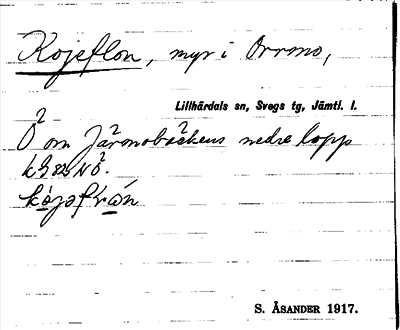 Kojeflon, myr i Orrmo,
Lillhärdals sn, Svegs tg, Jämtl. l.
Ö om Järmobäckens nedre lopp
S. ÅSANDER 1917.